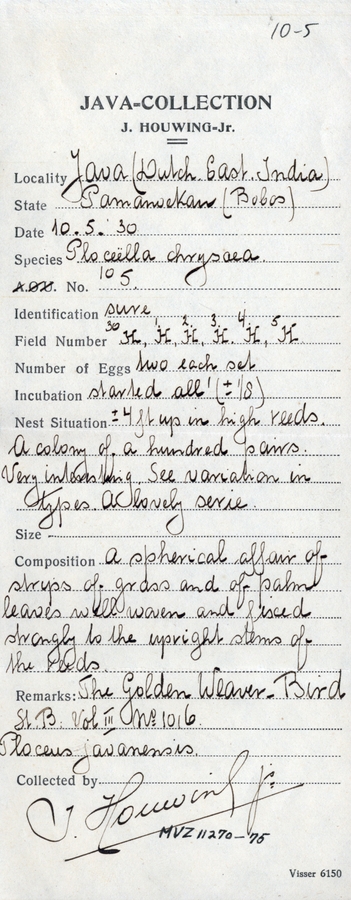 10-5
JAVA-COLLECTION
J. HOUWING-Jr.
Locality Java (Dutch. East. India)
State Pamanoekan (Bobos)
Date 10.5.'30
Species Ploceëlla chrysaea
A.O.U. No. 10 5.
Identification sure
Field Number 30 H, 1 H, 2 H, 3 H. 4 H, 5 H
Number of Eggs two each set
Incubation started all! (± 1/8)
Nest Situation ± 4 ft up in high reeds.
A colony of a hundred pairs.
Very interesting. See variation in
types. A lovely serie.
Size
Composition a spherical affair of
strips of grass and of palm
leaves well woven and fixed
strongly to the upright stems of
the reeds.
Remarks: The Golden Weaver-Bird
St.B. Vol III No 1016.
Ploceus javanensis.
Collected by
J. Houwing Jr.
MVZ 11270-75
Visser 6150